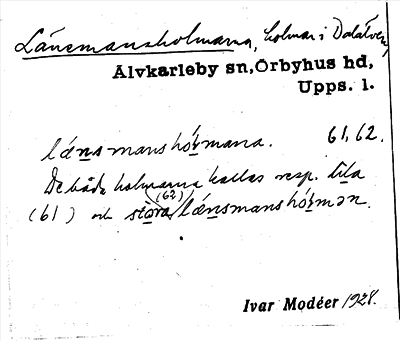 Länsmansholmarna, holmar i Dalälven
Älvkarleby sn, Örbyhus hd,
Upps. l.
lænsmanshólmana. 61, 62.
De båda holmarna kallas resp. lila
(61) och stora (62) lænsmanshólmən.
Ivar Modéer 1928.